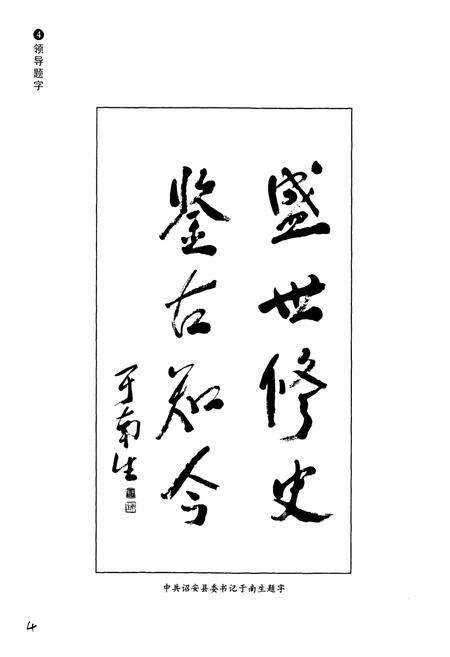 ❹ 领导题字
盛世修史
鉴古知今
于南生
中共诏安县委书记于南生题字
4